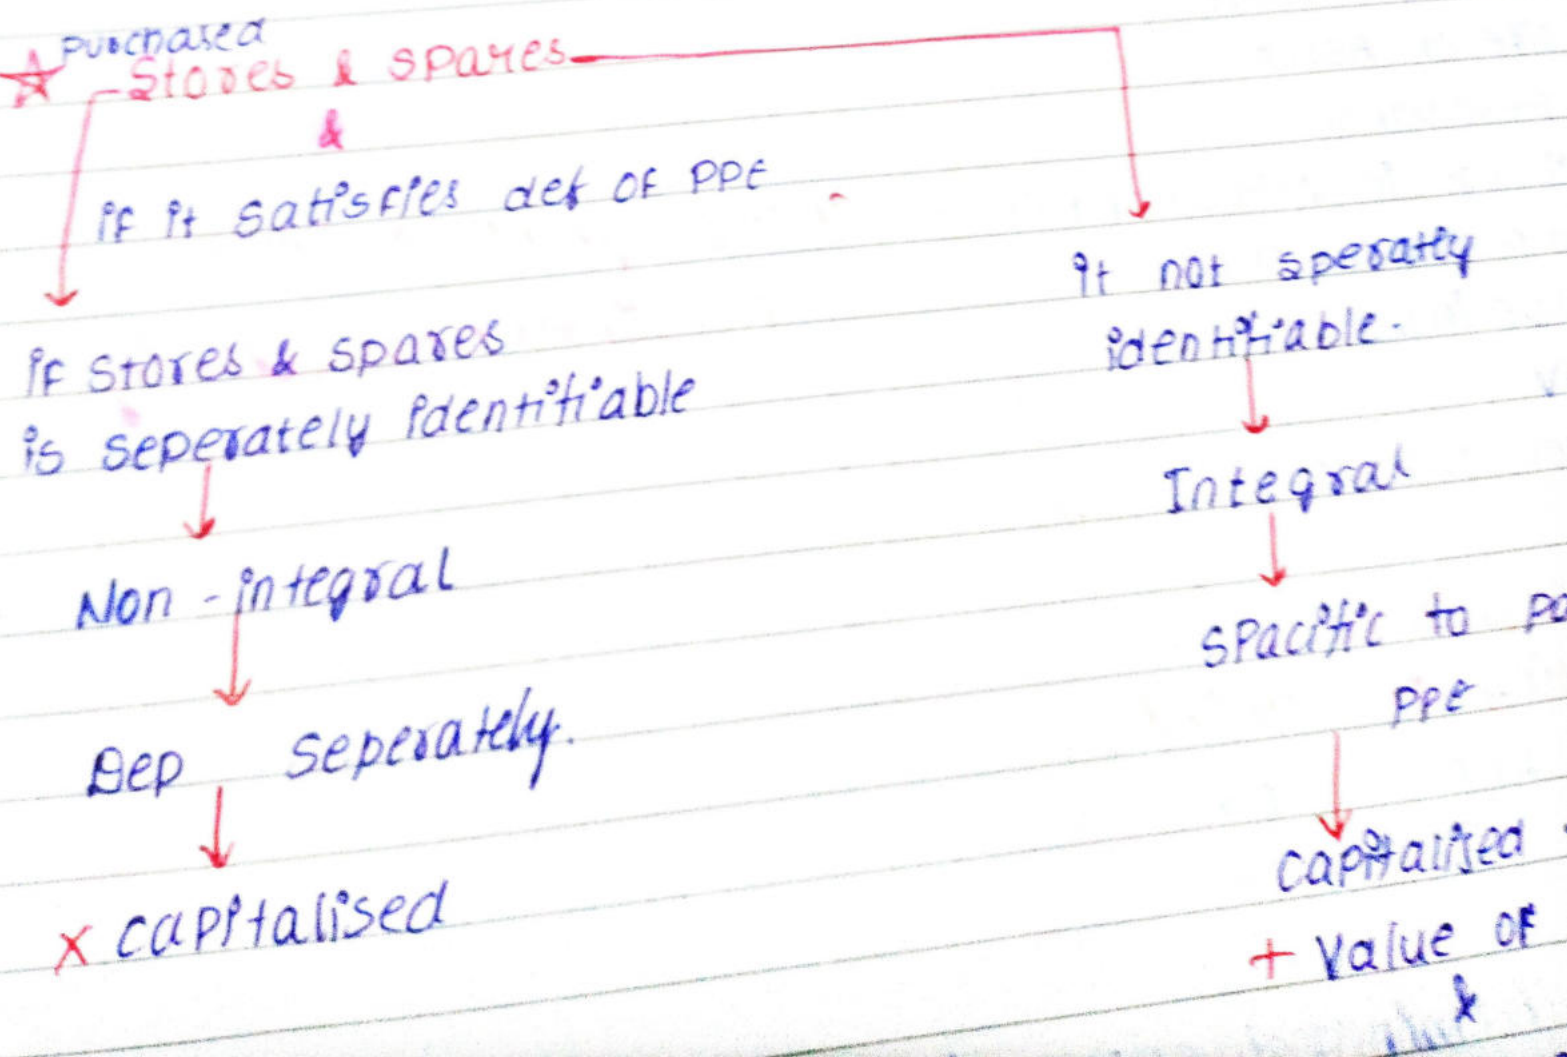 purchased
Stores & spares
&
if it satisfies def of PPE
if stores & spares
is seperately identifiable
Non-integral
Dep seperately.
x capitalised
it not speratly
identifiable.
Integral
spacific to
PPE
capitalised
+ value of
&